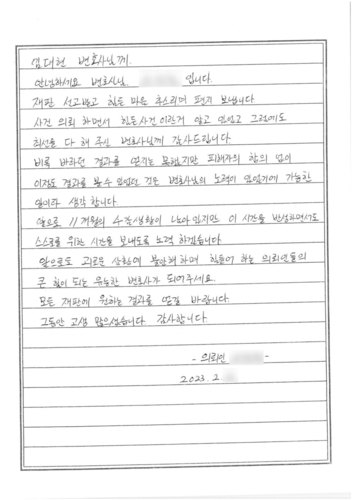 임대현 변호사님께.
안녕하세요 변호사님 입니다.
재판 선고받고 힘든 마음 추스리며 편지 보냅니다
사건 의뢰 하면서 힘든사건 이란거 알고 있었고 그럼에도
최선을 다 해 주신 변호사님께 감사드립니다.
비록 바라던 결과를 얻지는 못했지만 피해자의 합의 없이
이정도 결과를 볼수 있었던 것은 변호사님의 노력이 있었기에 가능한
일이라 생각합니다
앞으로 11개월의 수감생활이 남아있지만 이 시간을 반성하면서도
스스로를 위한 시간을 보내도록 노력 하겠습니다
앞으로도 괴로운 상황에 불안해 하며 힘들어 하는 의뢰인들의
큰 힘이 되는 유능한 변호사가 되어주세요.
모든 재판에 원하는 결과를 얻길 바랍니다.
그동안 고생 많으셨습니다 감사합니다.
- 의뢰인 -
2023. 2